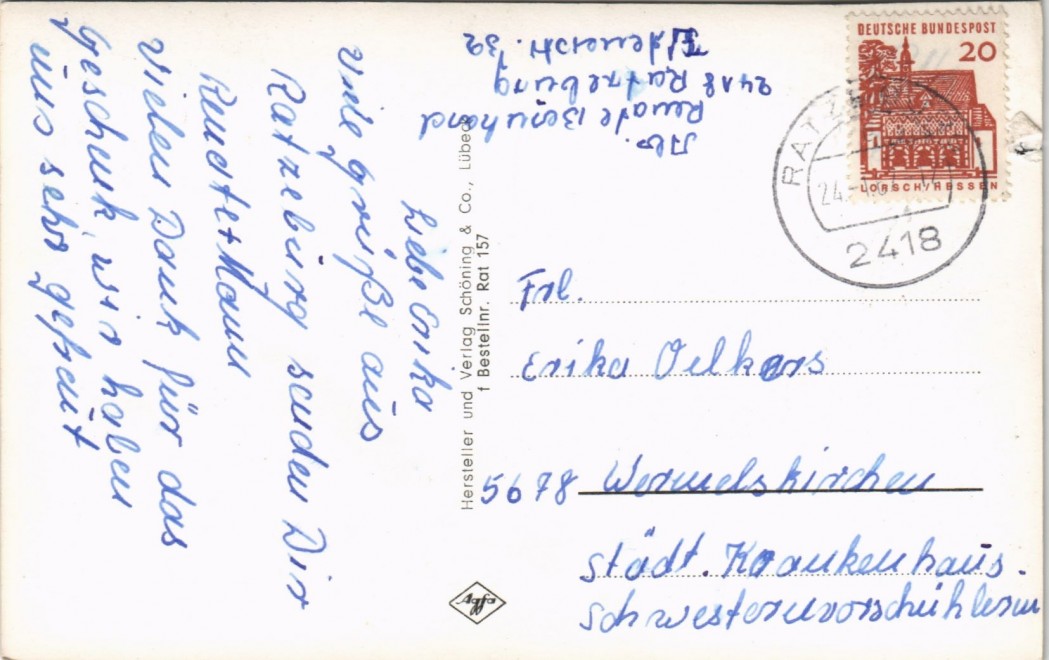 Liebe Erika
viele Grüße aus
Ratzeburg senden Dir
Renate + Mann
Vielen Dank für das
Geschenk, wir haben
uns sehr gefreut
Ab.
Renate
2418 Ratzeburg
str. 32
DEUTSCHE BUNDESPOST
20
LORSCH/HESSEN
RATZEBURG
24.
2418
Hersteller und Verlag Schöning & Co., Lübeck
f Bestellnr. Rat 157
Frl.
Erika Oelkers
5678 Wermelskirchen
Städt. Krankenhaus.
Schwesternvorschühlerin
Agfa